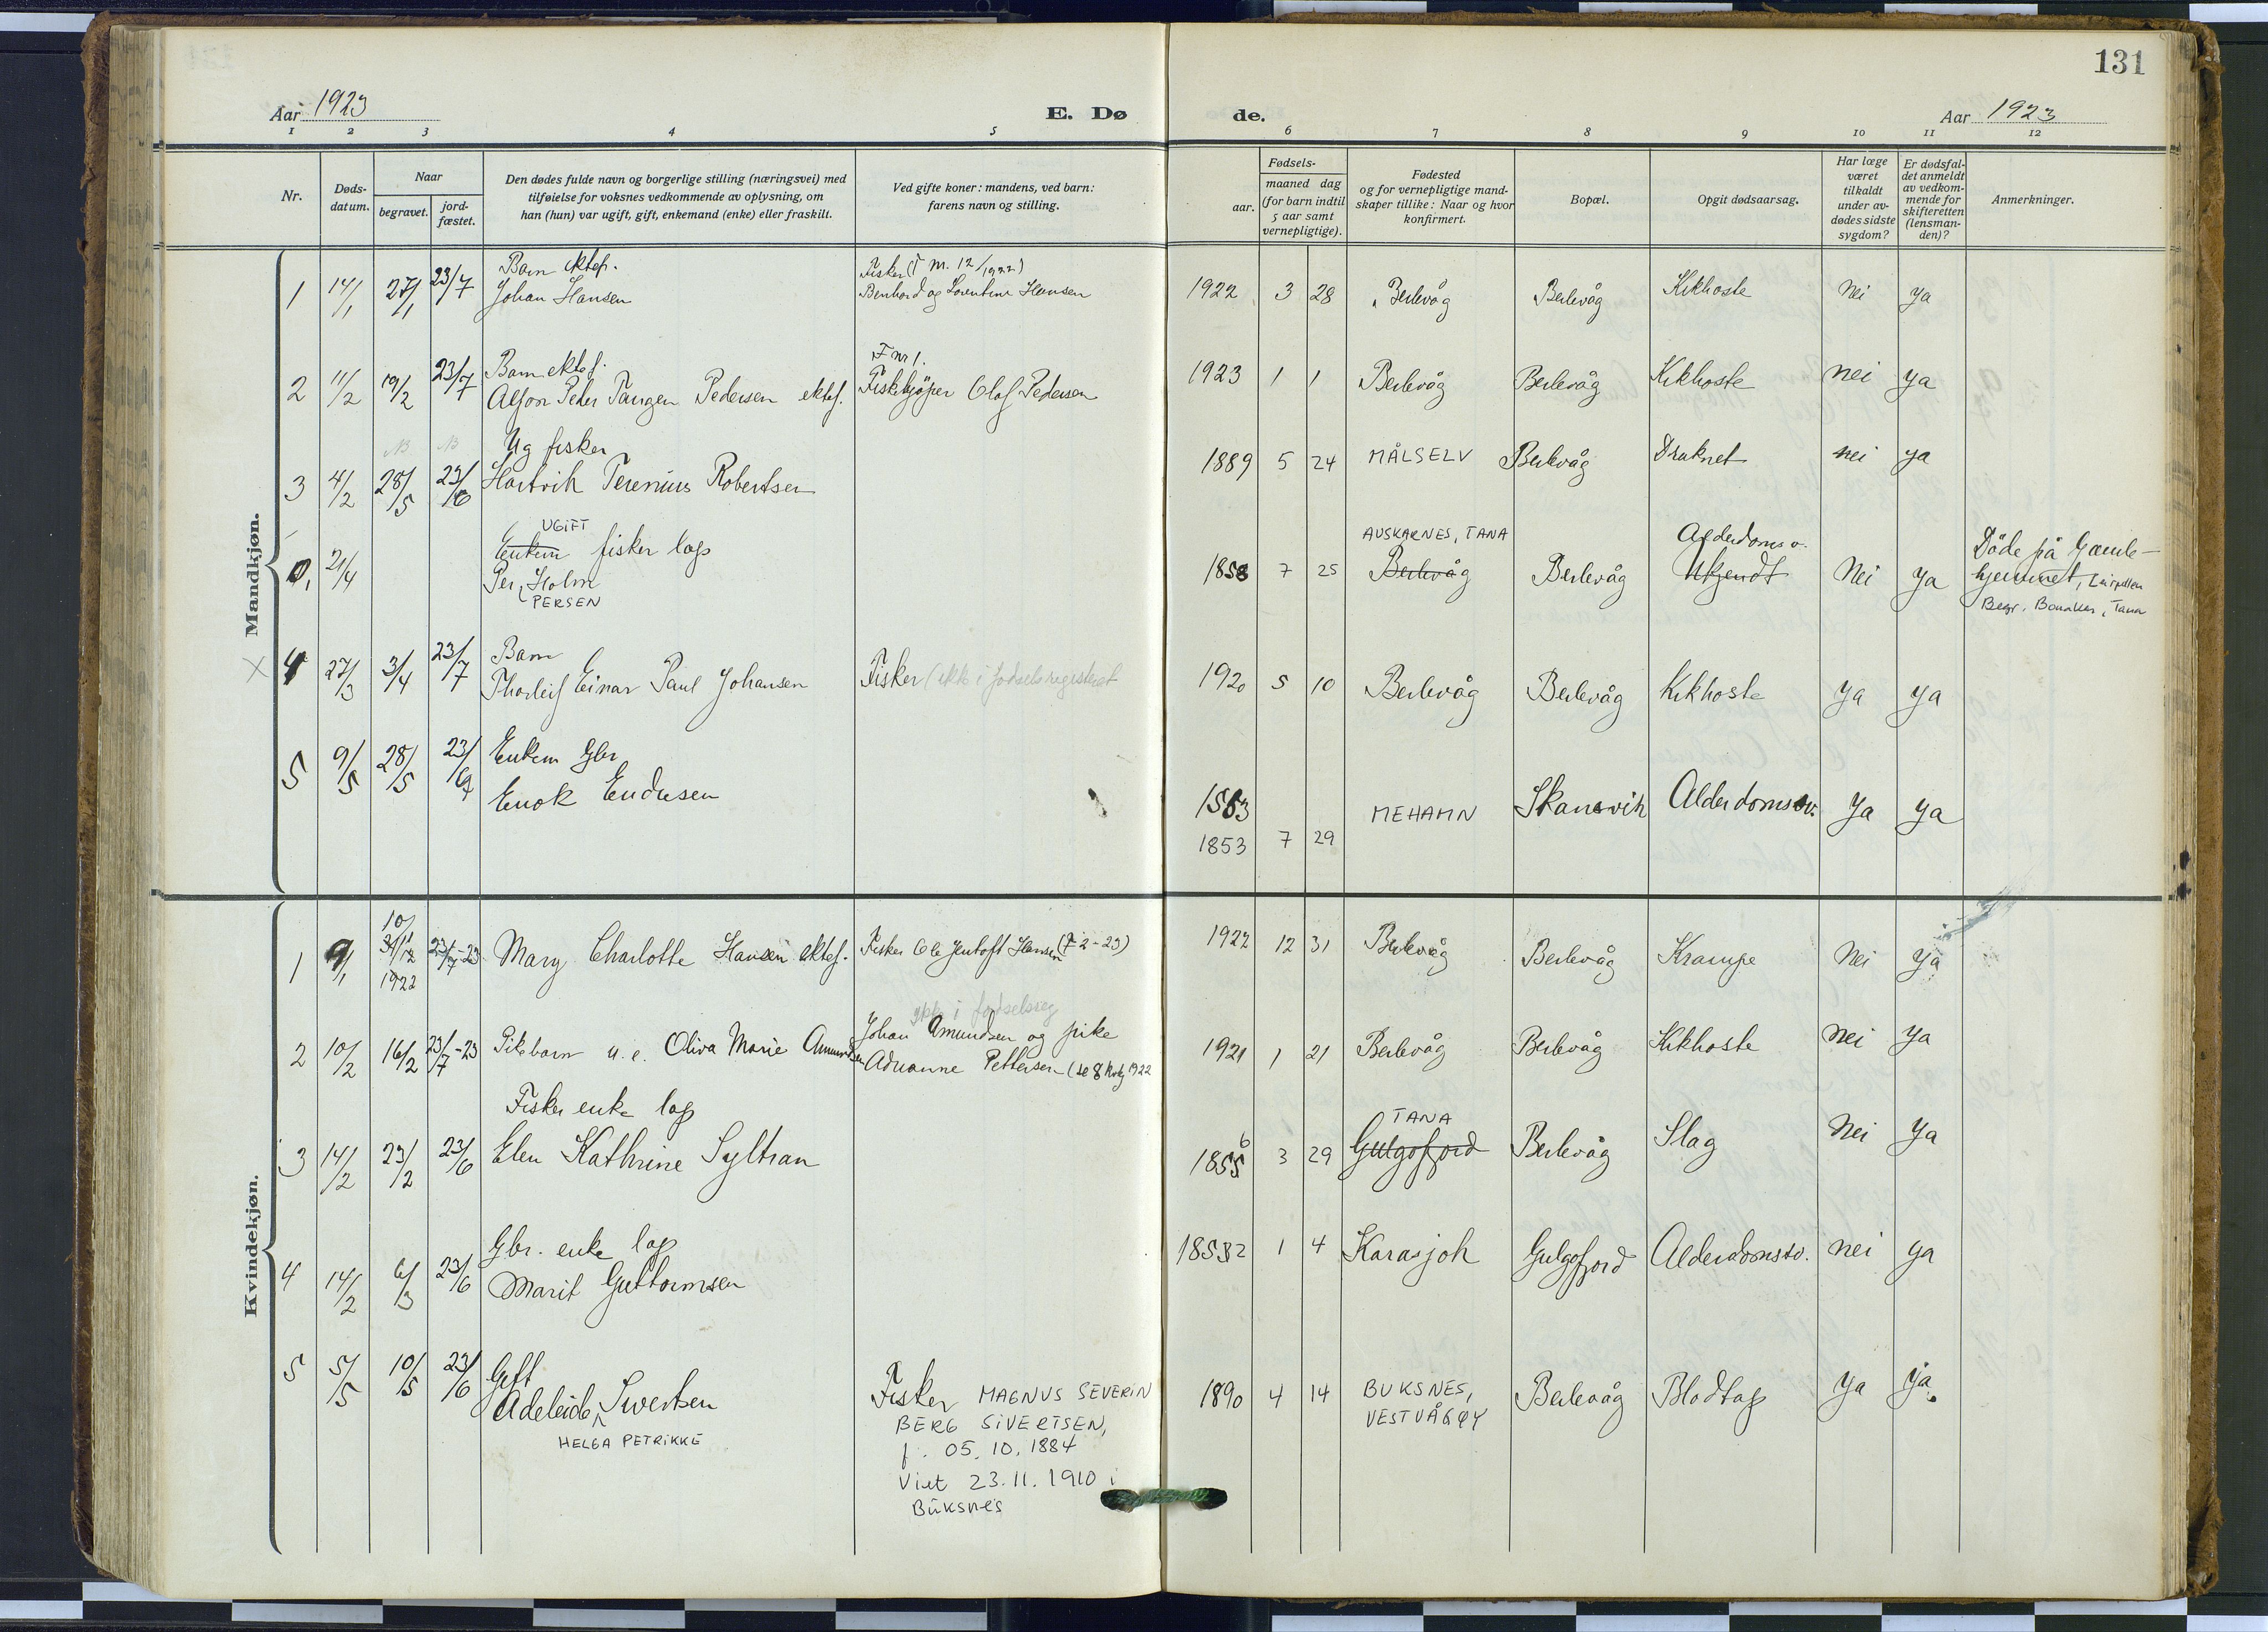 131
Aar 1923
E. Dø
de.
Aar 1923
1 2 3 4 5 6 7 8 9 10 11 12
Nr.
Døds-
datum.
Naar
begravet.
jord-
fæstet.
Den dødes fulde navn og borgerlige stilling (næringsvei) med
tilføielse for voksnes vedkommende av oplysning, om
han (hun) var ugift, gift, enkemand (enke) eller fraskilt.
Ved gifte koner: mandens, ved barn:
farens navn og stilling.
Fødsels-
aar.
maaned dag
(for barn indtil
5 aar samt
vernepligtige).
Fødested
og for vernepligtige mand-
skaper tillike: Naar og hvor
konfirmert.
Bopæl.
Opgit dødsaarsag.
Har læge
været
tilkaldt
under av-
dødes sidste
sygdom?
Er dødsfal-
det anmeldt
av vedkom-
mende for
skifteretten
(lensman-
den)?
Anmerkninger.
Mandkjøn.
Barn ektef. Fisker (F nr. 12/1922)
1 14/1 27/1 23/7 Johan Hansen Benhard og Lorentine Hansen 1922 3 28 Berlevåg Berlevåg Kikhoste Nei Ja
Barn ektef. F nr 1.
2 11/2 19/2 23/7 Alfon Peder Tangen Pedersen ektef. Fiskekjöper Olaf Pedersen 1923 1 1 Berlevåg Berlevåg Kikhoste nei ya
NB NB Ug fisker
3 4/2 28/5 23/6 Hartvik Terenius Robertsen 1889 5 24 MÅLSELV Berlevåg Druknet nei ya
UGIFT AUSKARNES, TANA Alderdoms v.
0, 21/4 Enkem fisker lap 1858 7 25 Berlevåg Berlevåg Ukjendt Nei ya Döde på Gamle-
Per Holm hjemmet,
PERSEN Begr. Bonakas, Tana
Barn
X 4 27/3 3/4 23/7 Thorleif Einar Paul Johansen Fisker (ikke i fødselsregisteret 1920 5 10 Berlevåg Berlevåg Kikhoste Ja ya
5 9/5 28/5 23/6 Enkem Gbr
Enok Endresen 1863 MEHAMN Skanevik Alderdomssv. Ja ya
1853 7 29
Kvindekjøn.
10/1
1 9/1 31/12 23/7-23 Mary Charlotte Hansen ektef. Fisker Ole Jentoft Hansen (F 2-23) 1922 12 31 Berlevåg Berlevåg Krampe Nei ya
1922
ikke i fødselsreg
Johan Amundsen og pike
2 10/2 16/2 23/7-23 Pikebarn u.e. Oliva Marie Amundsen Adrianne Pettersen (se 8 1922 1921 1 21 Berlevåg Berlevåg Kikhoste nei ya
Fisker enke lap TANA
3 14/2 23/2 23/6 Elen Kathrine Syltran 18556 3 29 Gulgofjord Berlevåg Slag Nei Ja
Gbr. enke lap
4 14/2 6/3 23/6 Marit Guttormsen 18532 1 4 Karasjok Gulgofjord Alderdomssv. nei ya
5 5/5 10/5 23/6 Gift
Adeleide Sivertsen Fisker MAGNUS SEVERIN 1890 4 14 BUKSNES, Berlevaag Blodtap Ja ja.
HELGA PETRIKKE BERG SIVERTSEN, VESTVÅGØY
f. 05.10.1884
Viet 23.11.1910 i
Buksnes